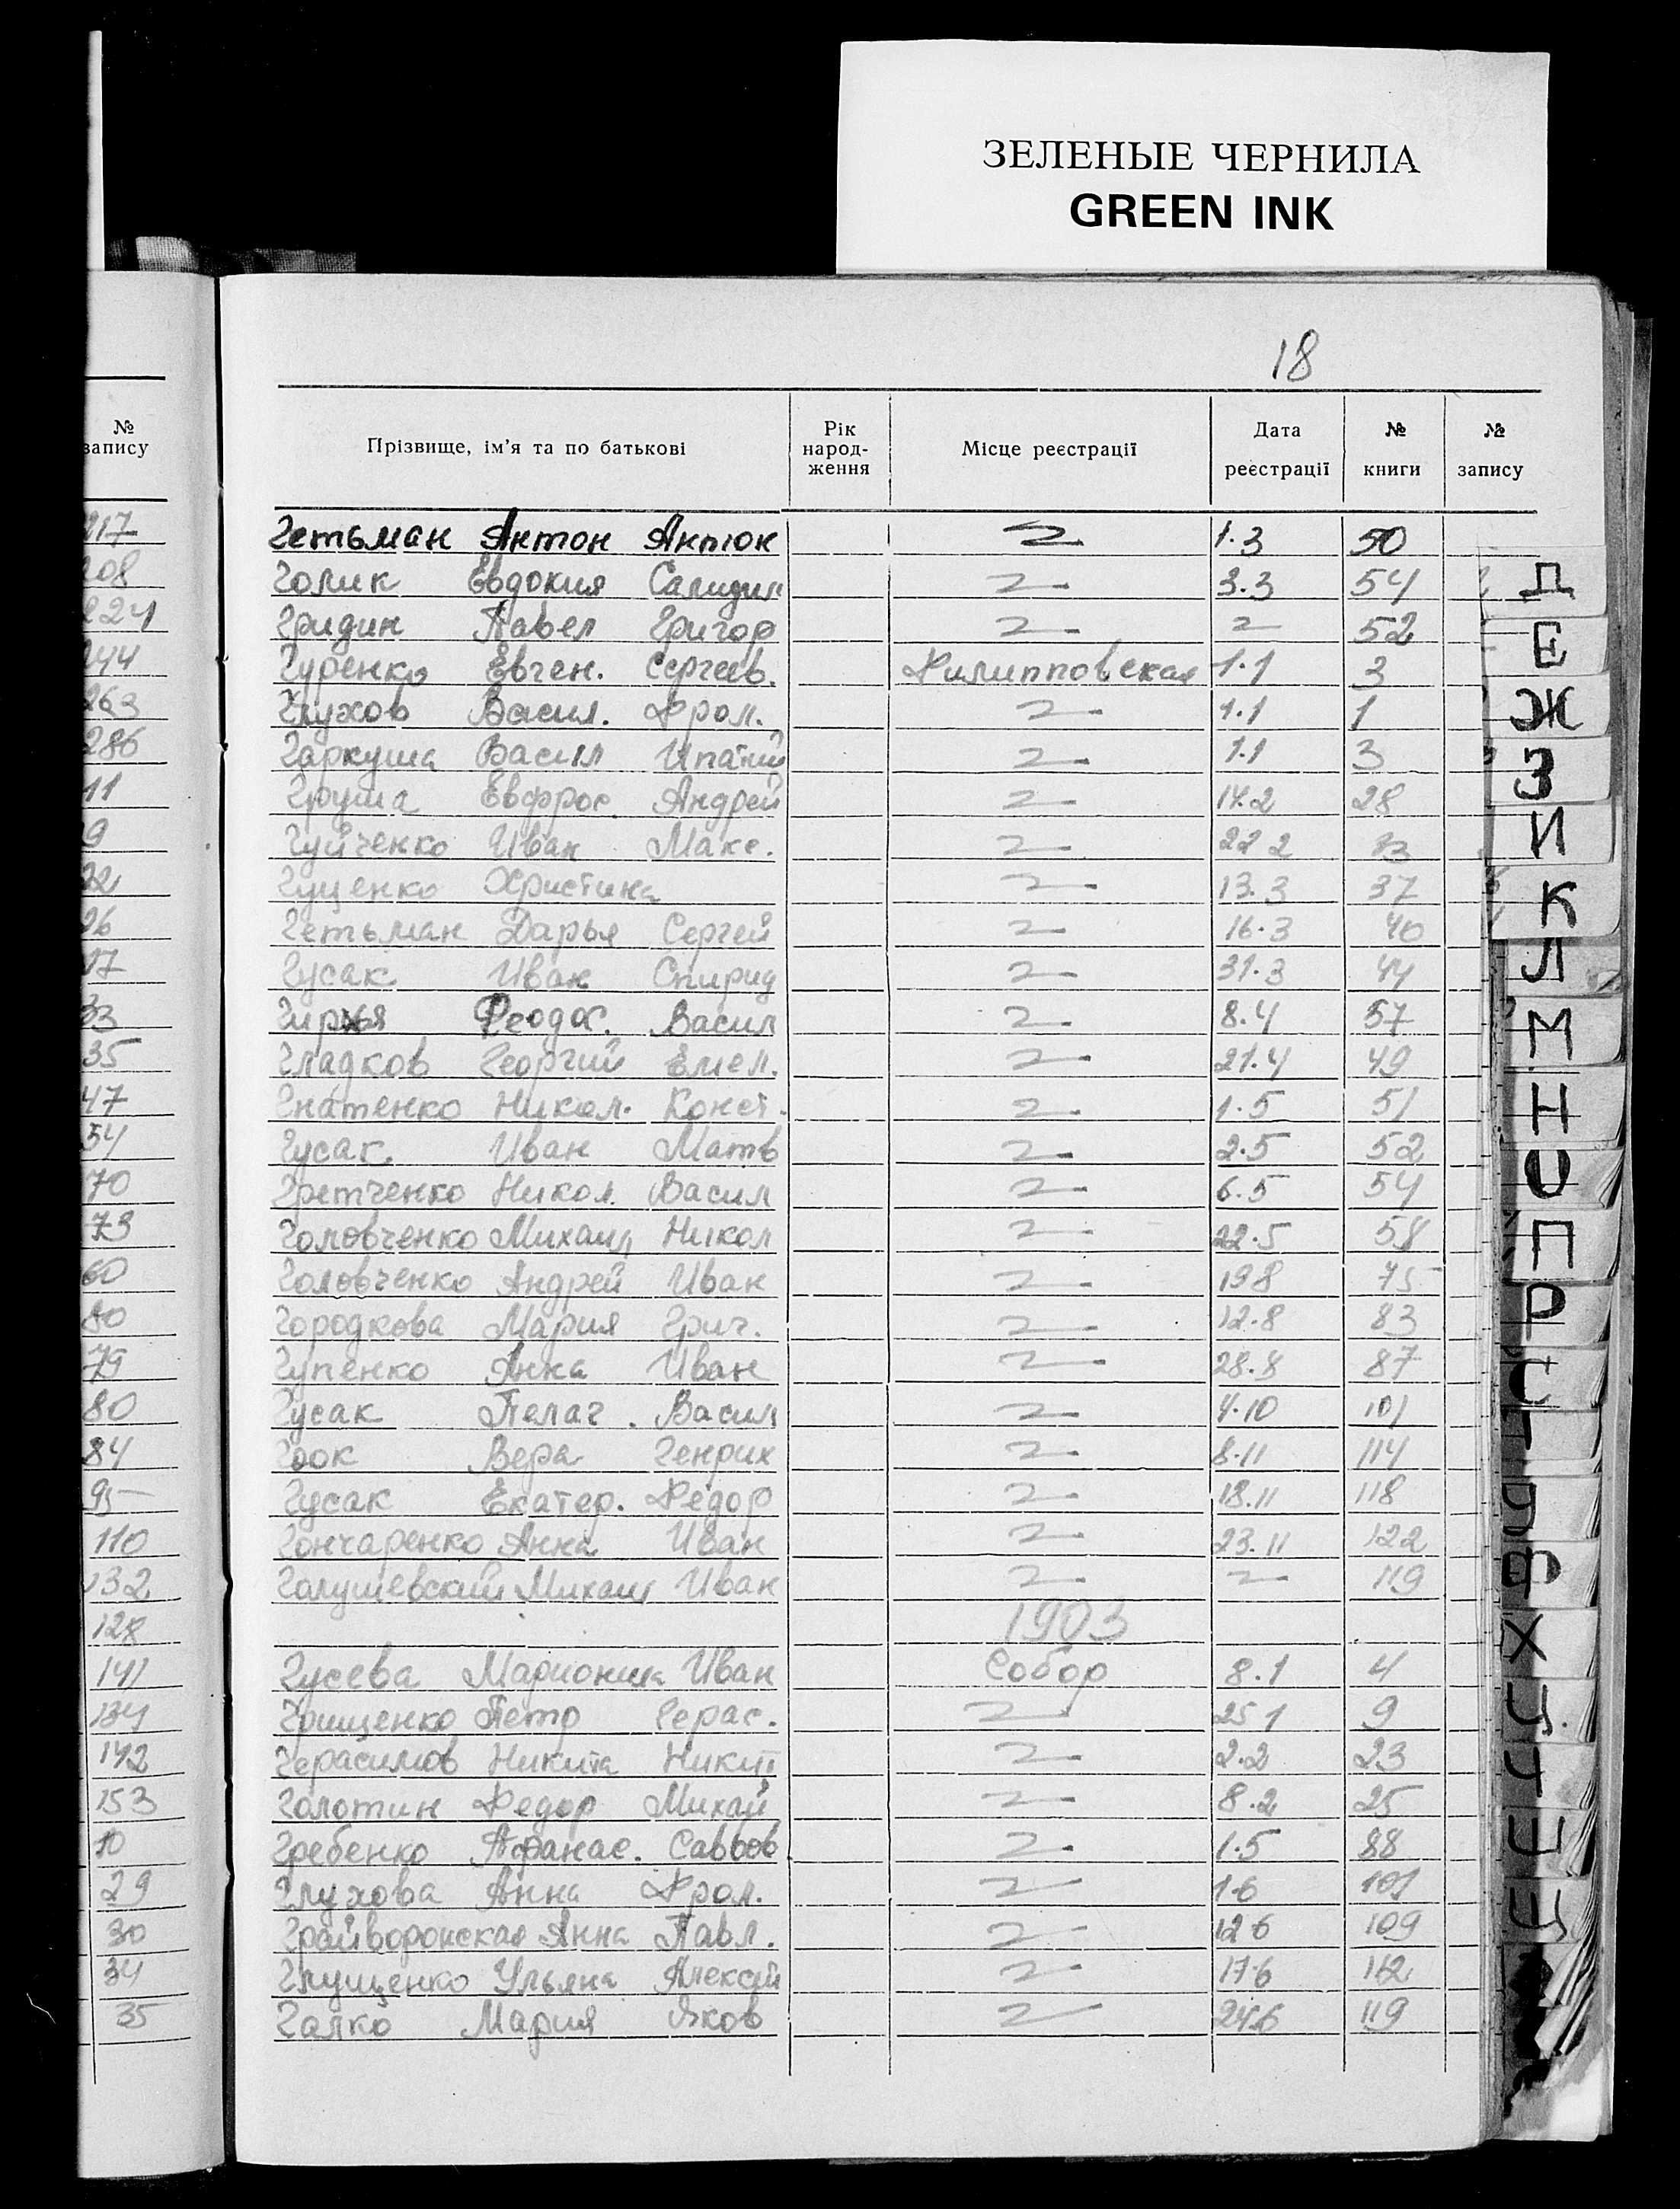 ЗЕЛЕНЫЕ ЧЕРНИЛА
GREEN INK
18
№ запису
Прізвище, ім'я та по батькові Рік народ- ження Місце реєстрації Дата реєстрації № книги № запису
217 Гетьман Антон Антон 1.3 50
208 Голик Евдокия 3.3 54
224 Гридин Павел Григор 52
244 Гуренко Евген. Сергеев. Филипповская 1.1 3
263 Глухов Васил. Фрол. 1.1 1
286 Гаркуша Васил Ипатий 1.1 3
11 Груша Евфрос. Андрей 14.2 28
9 Гуйченко Иван Макс. 22 2
22 Гуценко Христина 13.3 37
26 Гетьман Дарья Сергей 16.3 40
17 Гусак Иван Спирид 31.3 44
33 Феодос. Васил 8.4 57
35 Гладков Георгий Емел. 21.4 49
47 Гнатенко Никол. Конст. 1.5 51
54 Гусак Иван Матв 2.5 52
70 Гретченко Никол. Васил 6.5 54
73 Головченко Михаил Никол 22.5 58
60 Головченко Андрей Иван 19 8 75
80 Городкова Мария Григ. 12.8 83
79 Гупенко Анна Иван 28.8 87
80 Гусак Пелаг. Васил 4.10 101
84 Гоок Вера Генрих 8.11 114
95 Гусак Екатер. Федор 18.11 118
110 Гончаренко Анна Иван 23.11 122
132 Галушевский Михаил Иван 119
128 1903
141 Гусева Марионила Иван Собор 8.1 4
134 Грищенко Петр Герас. 25 1 9
142 Герасимов Никита Никит 2.2 23
153 Голотин Федор Михай 8.2 25
10 Гребенко Афанас. Саввов. 1.5 88
29 Глухова Анна Фрол. 1.6 101
30 Грайворонская Анна Павл. 12 6 109
34 Глущенко Ульяна Алексей 17.6 112
35 Галко Мария Яков 24.6 119
Д
Е
Ж
З
И
К
Л
М
Н
О
П
Р
С
Т
У
Ф
Х
Ц
Ч
Ш
Щ